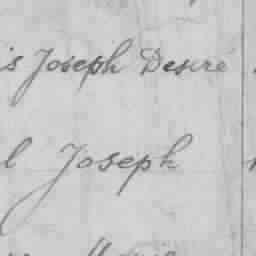 is Joseph Desiré
l Joseph